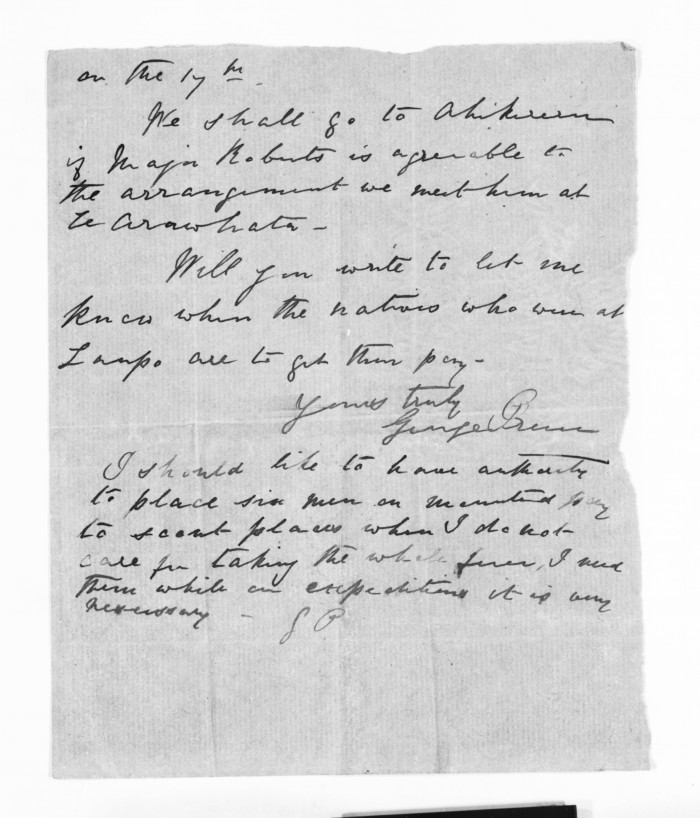 on the 17th.
We shall go to Ahikereru
if Major Roberts is agreeable to
the arrangement we meet him at
te Arawhata -
Will you write to let me
know when the natives who were at
Taupo are to get their pay -
Yours truly
George Preece
I should like to have authority
to place six men on mounted pay
to scout places when I do not
care for taking the whole force, I need
them while on expeditions it is very
nessessary - G P